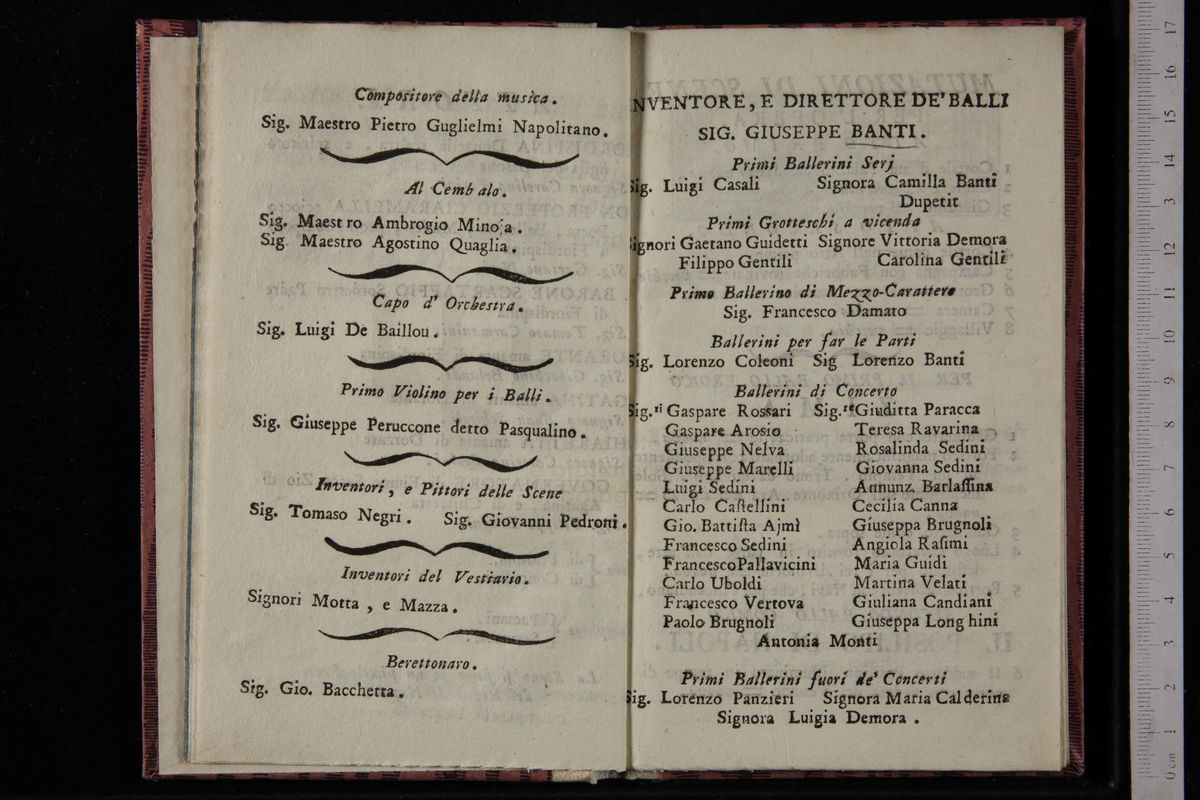 Compositore della musica.
Sig. Maestro Pietro Guglielmi Napolitano.
Al Cemb alo.
Sig. Maest ro Ambrogio Minoja.
Sig. Maestro Agostino Quaglia.
Capo d' Orchestra.
Sig. Luigi De Baillou.
Primo Violino per i Balli.
Sig. Giuseppe Peruccone detto Pasqualino.
Inventori, e Pittori delle Scene
Sig. Tomaso Negri. Sig. Giovanni Pedroni.
Inventori del Vestiario.
Signori Motta, e Mazza.
Berettonaro.
Sig. Gio. Bacchetta.
NVENTORE, E DIRETTORE DE' BALLI
SIG. GIUSEPPE BANTI.
Primi Ballerini Serj
Sig. Luigi Casali Signora Camilla Banti
Dupetit
Primi Grotteschi a vicenda
Signori Gaetano Guidetti Signore Vittoria Demora
Filippo Gentili Carolina Gentili
Primo Ballerino di Mezzo-Carattere
Sig. Francesco Damato
Ballerini per far le Parti
Sig. Lorenzo Coleoni Sig Lorenzo Banti
Ballerini di Concerto
Sig.ri Gaspare Rossari Sig.re Giuditta Paracca
Gaspare Arosio Teresa Ravarina
Giuseppe Nelva Rosalinda Sedini
Giuseppe Marelli Giovanna Sedini
Luigi Sedini Annunz. Barlaſſina
Carlo Caſtellini Cecilia Canna
Gio. Battiſta Ajmì Giuseppa Brugnoli
Francesco Sedini Angiola Raſimi
Francesco Pallavicini Maria Guidi
Carlo Uboldi Martina Velati
Francesco Vertova Giuliana Candiani
Paolo Brugnoli Giuseppa Long hini
Antonia Monti
Primi Ballerini fuori de' Concerti
Sig. Lorenzo Panzieri Signora Maria Calderina
Signora Luigia Demora.